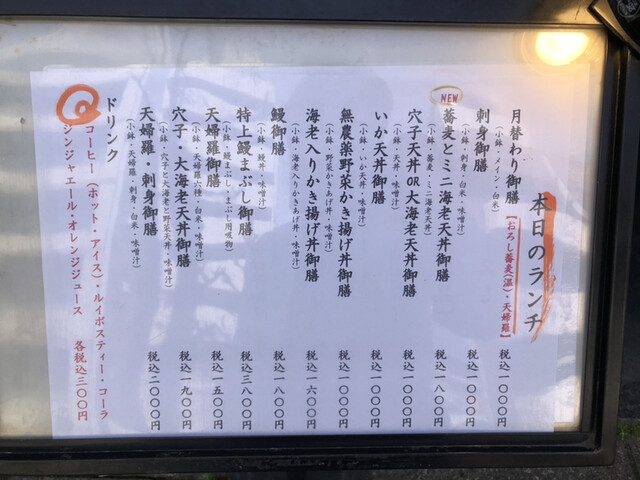 本日のランチ
月替わり御膳【おろし蕎麦(温)・天婦羅】 税込一〇〇〇円
(小鉢・メイン・白米)
刺身御膳 税込一〇〇〇円
(小鉢・刺身・白米・味噌汁)
NEW
蕎麦とミニ海老天丼御膳 税込一八〇〇円
(小鉢・蕎麦・ミニ海老天丼)
穴子天丼OR大海老天丼御膳 税込一〇〇〇円
いか天丼御膳 税込一〇〇〇円
(小鉢・いか天丼・味噌汁)
無農薬野菜かき揚げ丼御膳 税込一〇〇〇円
(小鉢・野菜かきあげ丼・味噌汁)
海老入りかき揚げ丼御膳 税込一六〇〇円
(小鉢・海老入りかきあげ丼・味噌汁)
鰻御膳 税込一八〇〇円
(小鉢・鰻丼・味噌汁)
特上鰻まぶし御膳 税込三八〇〇円
(小鉢・鰻まぶし・まぶし用吸物)
天婦羅御膳 税込一五〇〇円
(小鉢・天婦羅六種・白米・味噌汁)
穴子・大海老天丼御膳 税込一九〇〇円
(小鉢・穴子と大海老と野菜天丼・味噌汁)
天婦羅・刺身御膳 税込二〇〇〇円
(小鉢・天婦羅・刺身・白米・味噌汁)
ドリンク
コーヒー(ホット・アイス)・ルイボスティー・コーラ
ジンジャエール・オレンジジュース 各税込三〇〇円